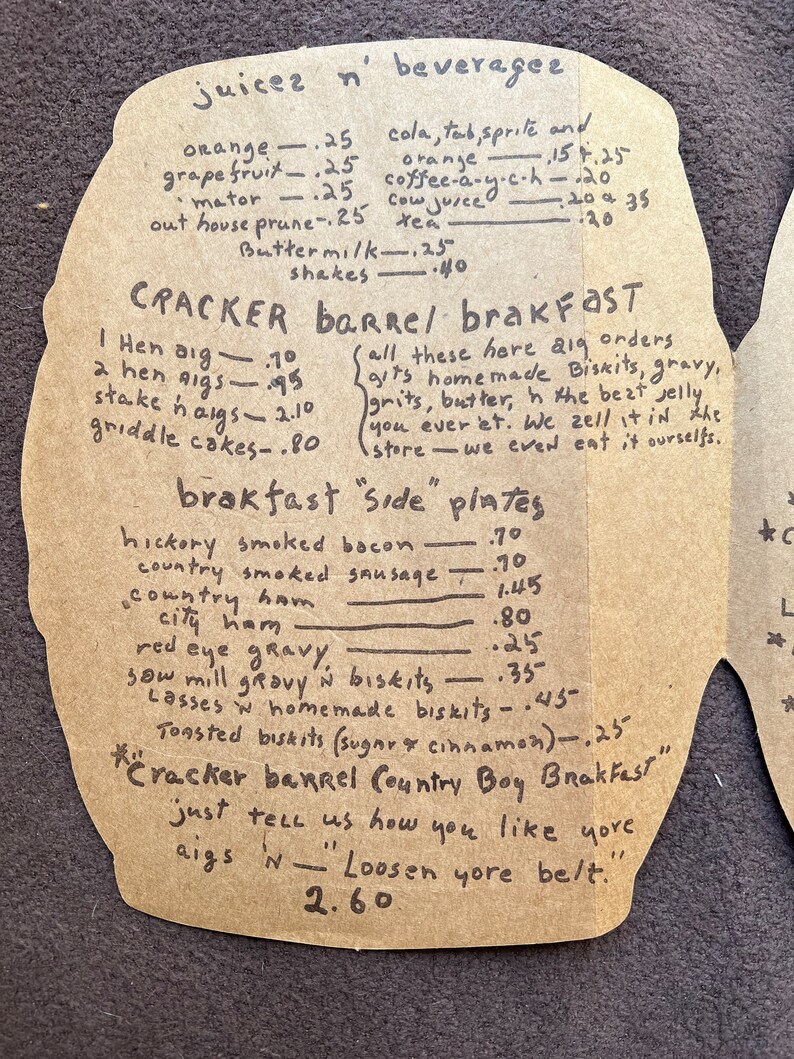 juices n' beverages
orange — .25
grapefruit — .25
'mator — .25
out house prune - .25
cola, tab, sprite and
orange — .15 & .25
coffee-a-y-c-h — .20
cow juice — .20 & 35
tea — .20
Buttermilk — .25
shakes — .40
CRACKER barrel brakFAST
1 Hen aig — .70
2 hen Aigs — .95
stake 'n aigs — 2.10
griddle cakes - .80
{all these here aig orders
gits homemade Biskits, gravy,
grits, butter, 'n the best jelly
you ever et. We sell it in the
store — we even eat it ourselfs.
brakfast "side" plates
hickory smoked bacon — .70
country smoked sausage — .70
country ham — 1.45
city ham — .80
red eye gravy — .25
saw mill gravy 'N biskits — .35
Lasses 'N homemade biskits - .45
Toasted biskits (sugar & cinnamon) — .25
*"Cracker barrel Country Boy Brakfast"
just tell us how you like yore
aigs 'N — "Loosen yore belt."
2.60
*C
L
*
*